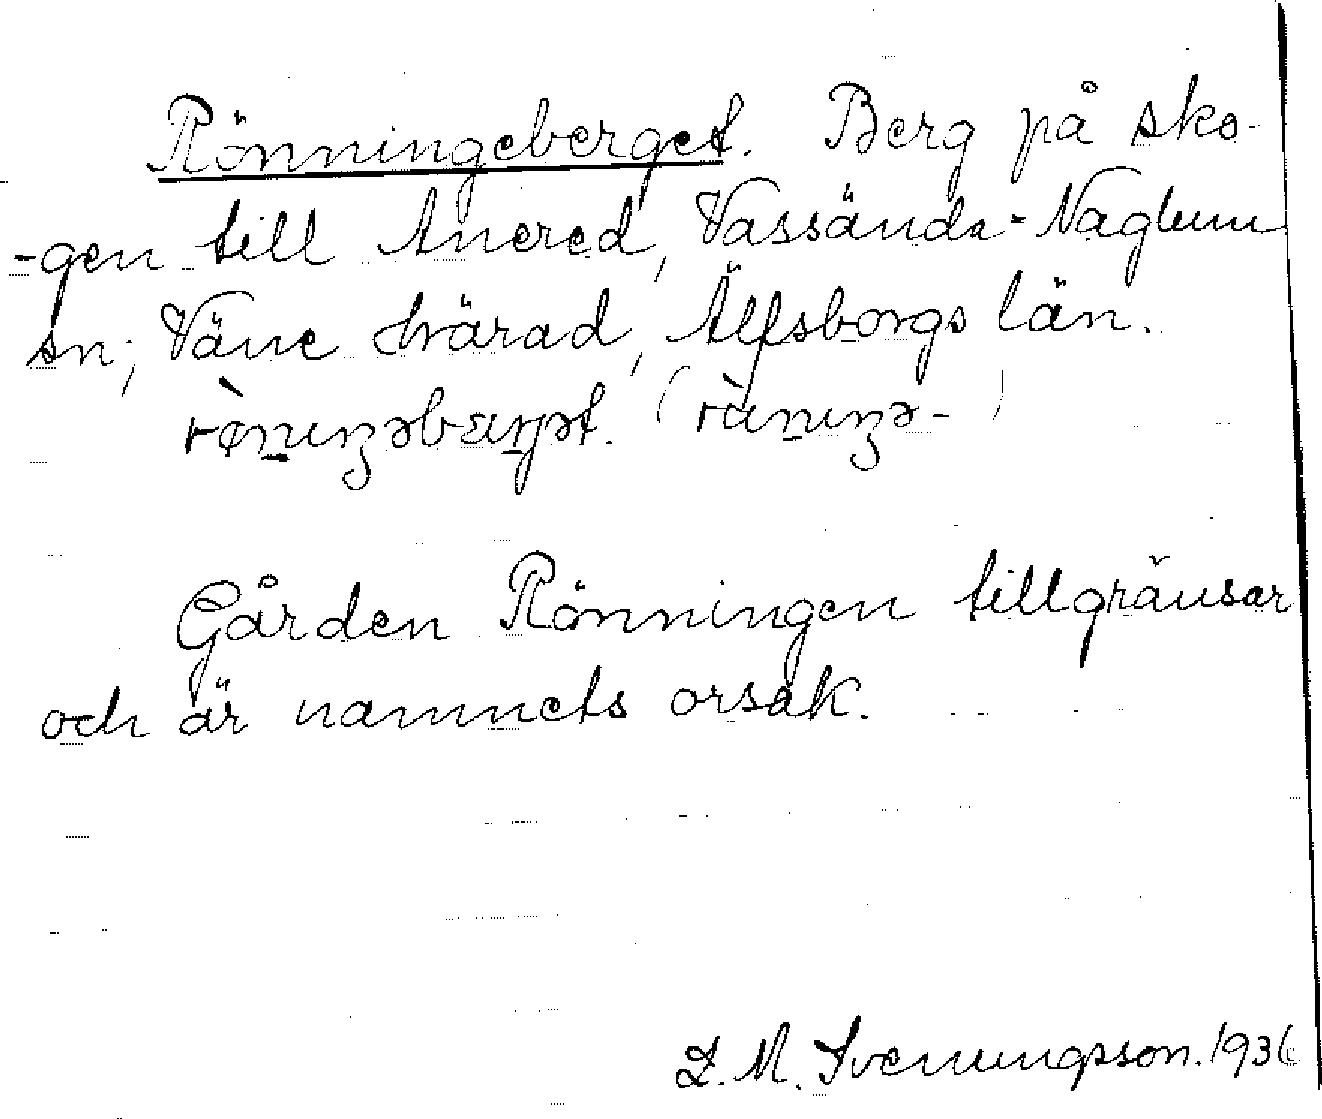 Rönningeberget. Berg på sko-
-gen till Anered, Vassända-Naglum
sn; Väne härad, Älfsborgs län.
Gården Rönningen tillgränsar
och är namnets orsak.
L. M. Svenungsson. 1936